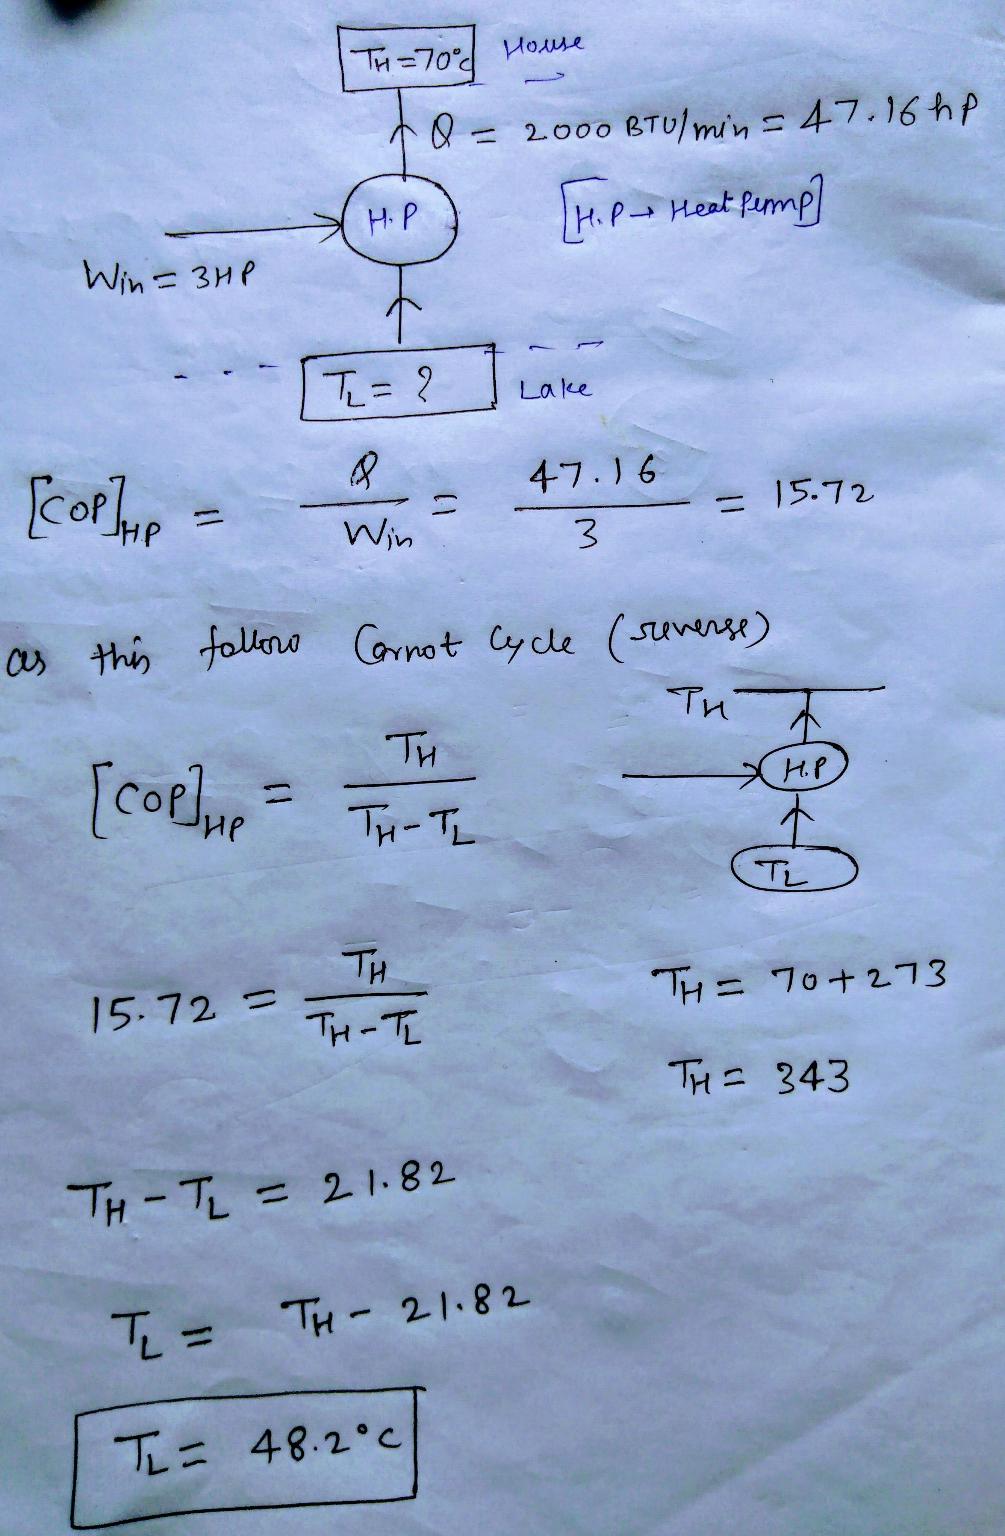 TH = 70°c House
Q = 2000 BTU/min = 47.16 hp
H.P [H.P → Heat Pump]
Win = 3HP
TL = ? Lake
[COP]H.P = Q / Win = 47.16 / 3 = 15.72
as this follow Carnot Cycle (reverse)
TH
[COP]HP = TH / TH - TL
H.P
TL
15.72 = TH / TH - TL
TH = 70 + 273
TH = 343
TH - TL = 21.82
TL = TH - 21.82
TL = 48.2°c